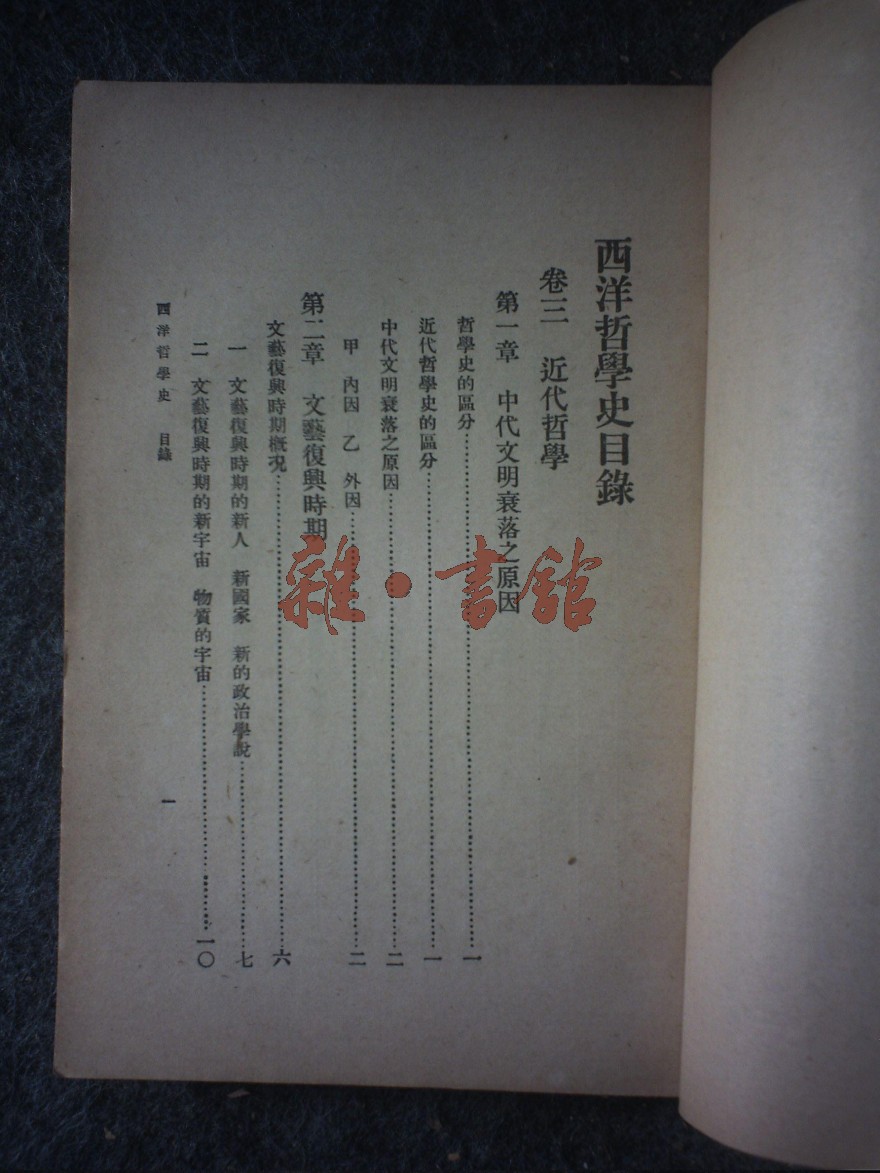 西洋哲學史目錄
卷三 近代哲學
第一章 中代文明衰落之原因
哲學史的區分……一
近代哲學史的區分……一
中代文明衰落之原因……二
甲 內因 乙 外因……二
第二章 文藝復興時期
文藝復興時期概況……六
一 文藝復興時期的新人 新國家 新的政治學說……七
二 文藝復興時期的新宇宙 物質的宇宙……一〇
西洋哲學史 目錄
一
雜·書館